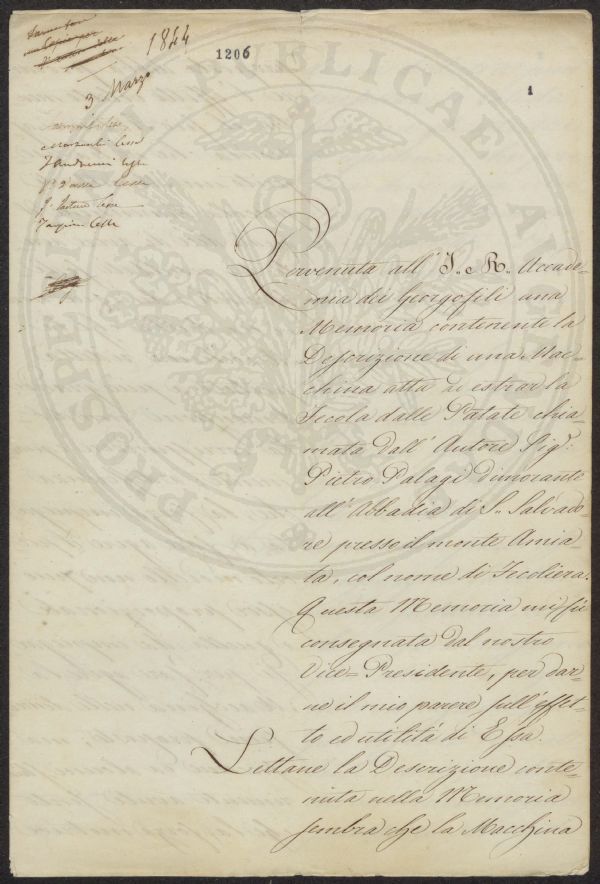 1844
1206
1
3 Marzo
Pervenuta all' I. e R. Accade=
mia dei Georgofili una
Memoria contenente la
Descrizione di una Mac=
china atta ad estrar la
Fecola dalle Patate chia=
mata dall' Autore Sigr.
Pietro Palagi dimorante
all' Abbadia di S. Salvado=
re presso il monte Amia=
ta, col nome di Fecoliera.
Questa Memoria mi fù
consegnata dal nostro
Vice=Presidente, per dar=
ne il mio parere sull' effet=
to ed utilità di Essa.
Lettane la Descrizione conte=
nuta nella Memoria
sembra che la Macchina
PROSPERITATI PUBLICAE AUGENDAE